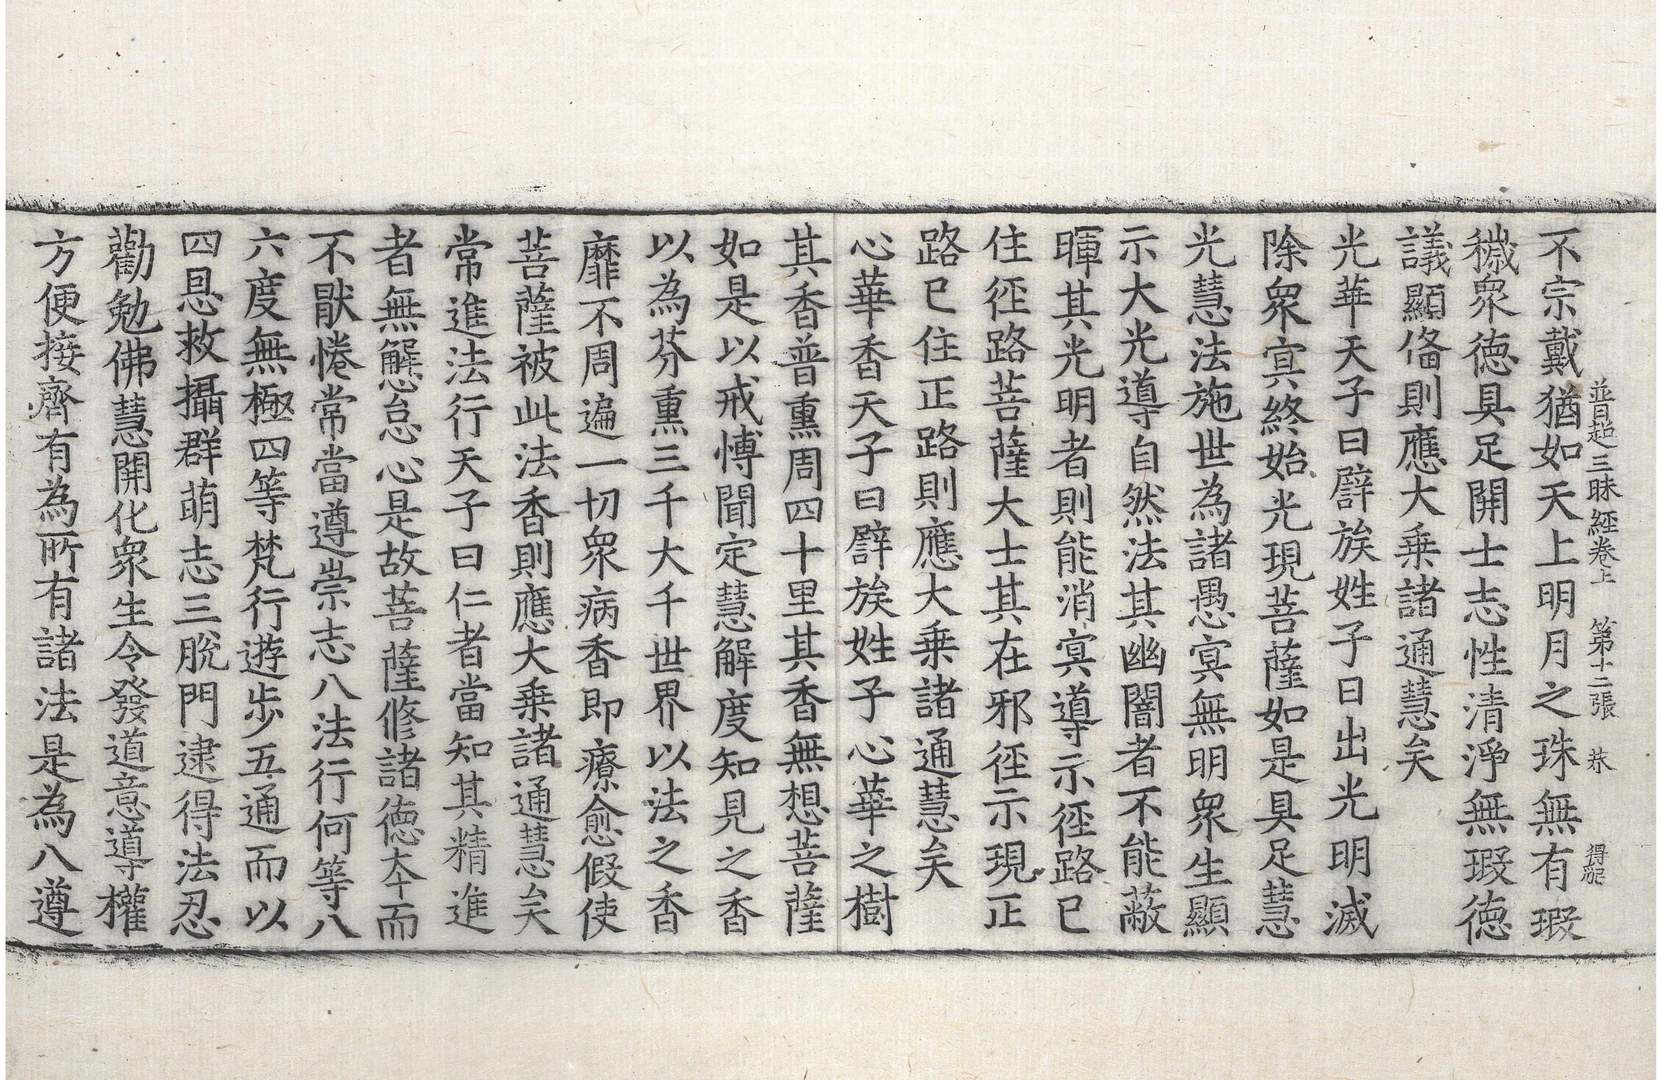 不宗戴猶如天上明月之珠無有瑕
並目超三昧經卷上 第十二張 恭 得宛
穢衆德具足開士志性清淨無瑕德
議顯俻則應大乗諸通慧矣
光華天子曰譬族姓子日出光明滅
除衆㝠終始光現菩薩如是具足慧
光慧法施世為諸愚㝠無明衆生顯
示大光導自然法其幽闇者不能蔽
暉其光明者則能消㝠導示徑路已
住徑路菩薩大士其在邪徑示現正
路已住正路則應大乗諸通慧矣
心華香天子曰譬族姓子心華之樹
其香普熏周四十里其香無想菩薩
如是以戒博聞定慧解度知見之香
以為芬熏三千大千世界以法之香
靡不周遍一切衆病香即療愈假使
菩薩被此法香則應大乗諸通慧矣
常進法行天子曰仁者當知其精進
者無懈怠心是故菩薩修諸德夲而
不猒惓常當遵崇志八法行何等八
六度無極四等梵行遊步五通而以
四恩救攝群萌志三脫門逮得法忍
勸勉佛慧開化衆生令發道意導權
方便接濟有為所有諸法是為八遵